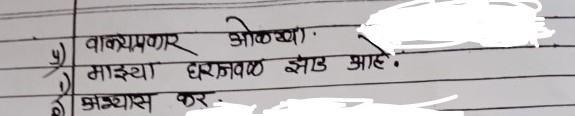 ५) वाक्यप्रकार ओळखा.
१) माझ्या घराजवळ झाड आहे.
२) अभ्यास कर.